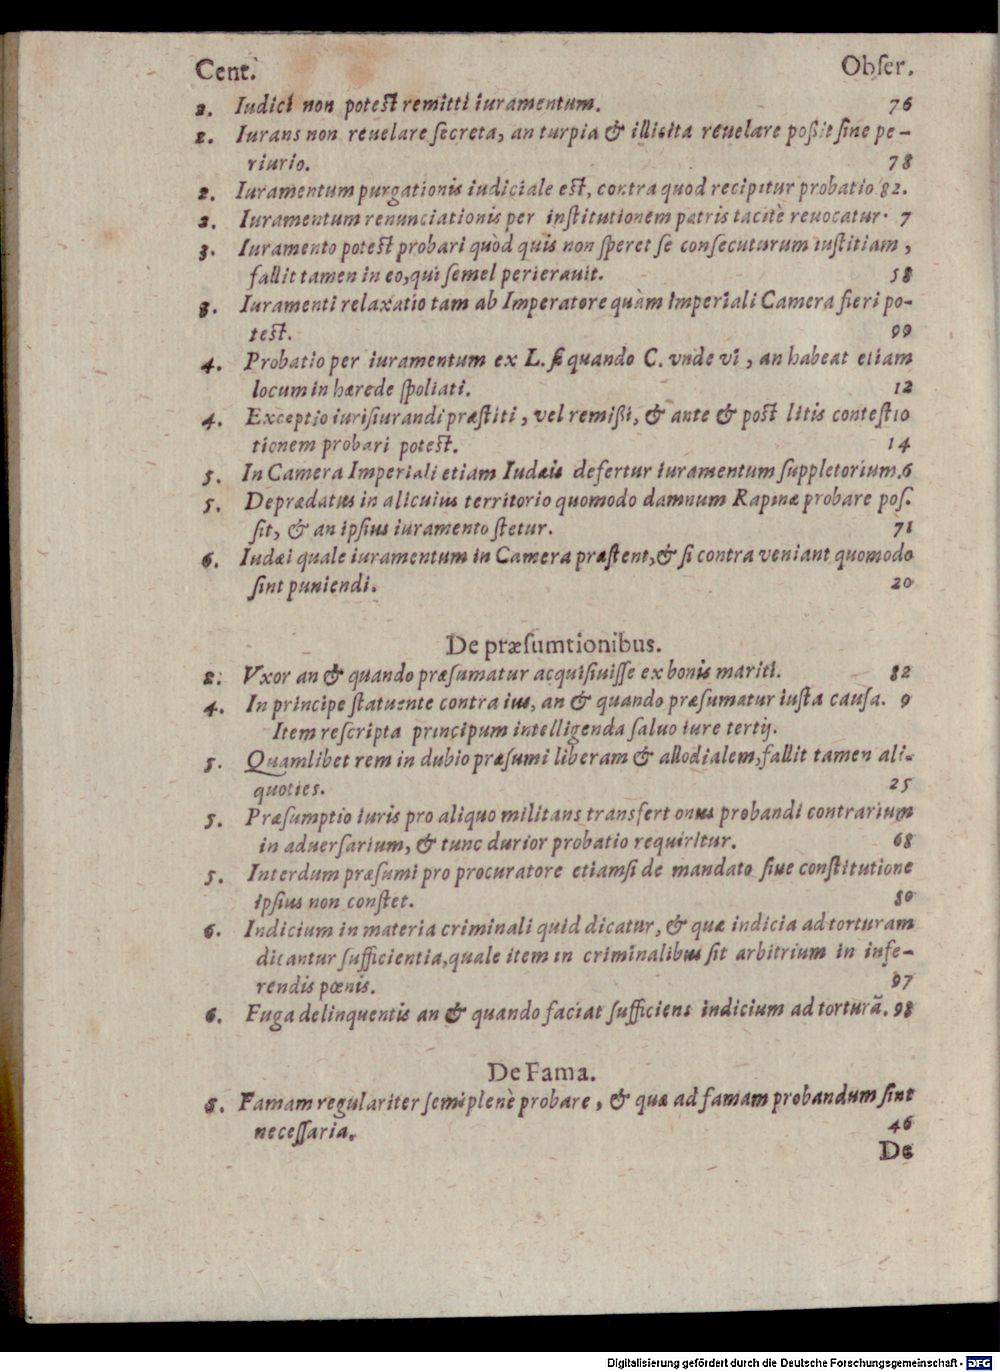 Cent. Obſer.
2. Iudici non poteſt remitti iuramentum. 76
2. Iurans non reuelare ſecreta, an turpia & illicita reuelare poßit ſine pe-
riurio. 78
2. Iuramentum purgationis iudiciale eſt, contra quod recipitur probatio 82.
2. Iuramentum renunciationis per inſtitutionem patris tacitè reuocatur. 7
3. Iuramento poteſt probari quòd quis non ſperet ſe conſecuturum iuſtitiam,
fallit tamen in eo, qui ſemel perierauit. 58
3. Iuramenti relaxatio tam ab Imperatore quàm Imperiali Camera fieri po-
teſt. 99
4. Probatio per iuramentum ex L. ſi quando C. vnde vi, an habeat etiam
locum in hærede ſpoliati. 12
4. Exceptio iuriſiurandi præſtiti, vel remißi, & ante & poſt litis conteſtio
tionem probari poteſt. 14
5. In Camera Imperiali etiam Iudæis defertur iuramentum ſuppletorium. 6
5. Deprædatus in alicuius territorio quomodo damnum Rapinæ probare poſ-
ſit, & an ipſius iuramento ſtetur. 71
6. Iudæi quale iuramentum in Camera præſtent, & ſi contra veniant quomodo
ſint puniendi. 20
De præſumtionibus.
2. Vxor an & quando præſumatur acquiſiuiſſe ex bonis mariti. 82
4. In principe ſtatuente contra ius, an & quando præſumatur iuſta cauſa. 9
Item reſcripta principum intelligenda ſaluo iure tertij.
5. Quamlibet rem in dubio præſumi liberam & allodialem, fallit tamen ali-
quoties. 25
5. Præſumptio iuris pro aliquo militans transfert onus probandi contrarium
in aduerſarium, & tunc durior probatio requiritur. 68
5. Interdum præſumi pro procuratore etiamſi de mandato ſiue conſtitutione
ipſius non conſtet. 80
6. Indicium in materia criminali quid dicatur, & quæ indicia ad torturam
dicantur ſufficientia, quale item in criminalibus ſit arbitrium in infe-
rendis pœnis. 97
6. Fuga delinquentis an & quando faciat ſufficiens indicium ad torturã. 98
De Fama.
5. Famam regulariter ſemiplenè probare, & quæ ad famam probandum ſint
neceſſaria. 46
De
Digitalisierung gefördert durch die Deutsche Forschungsgemeinschaft - DFG